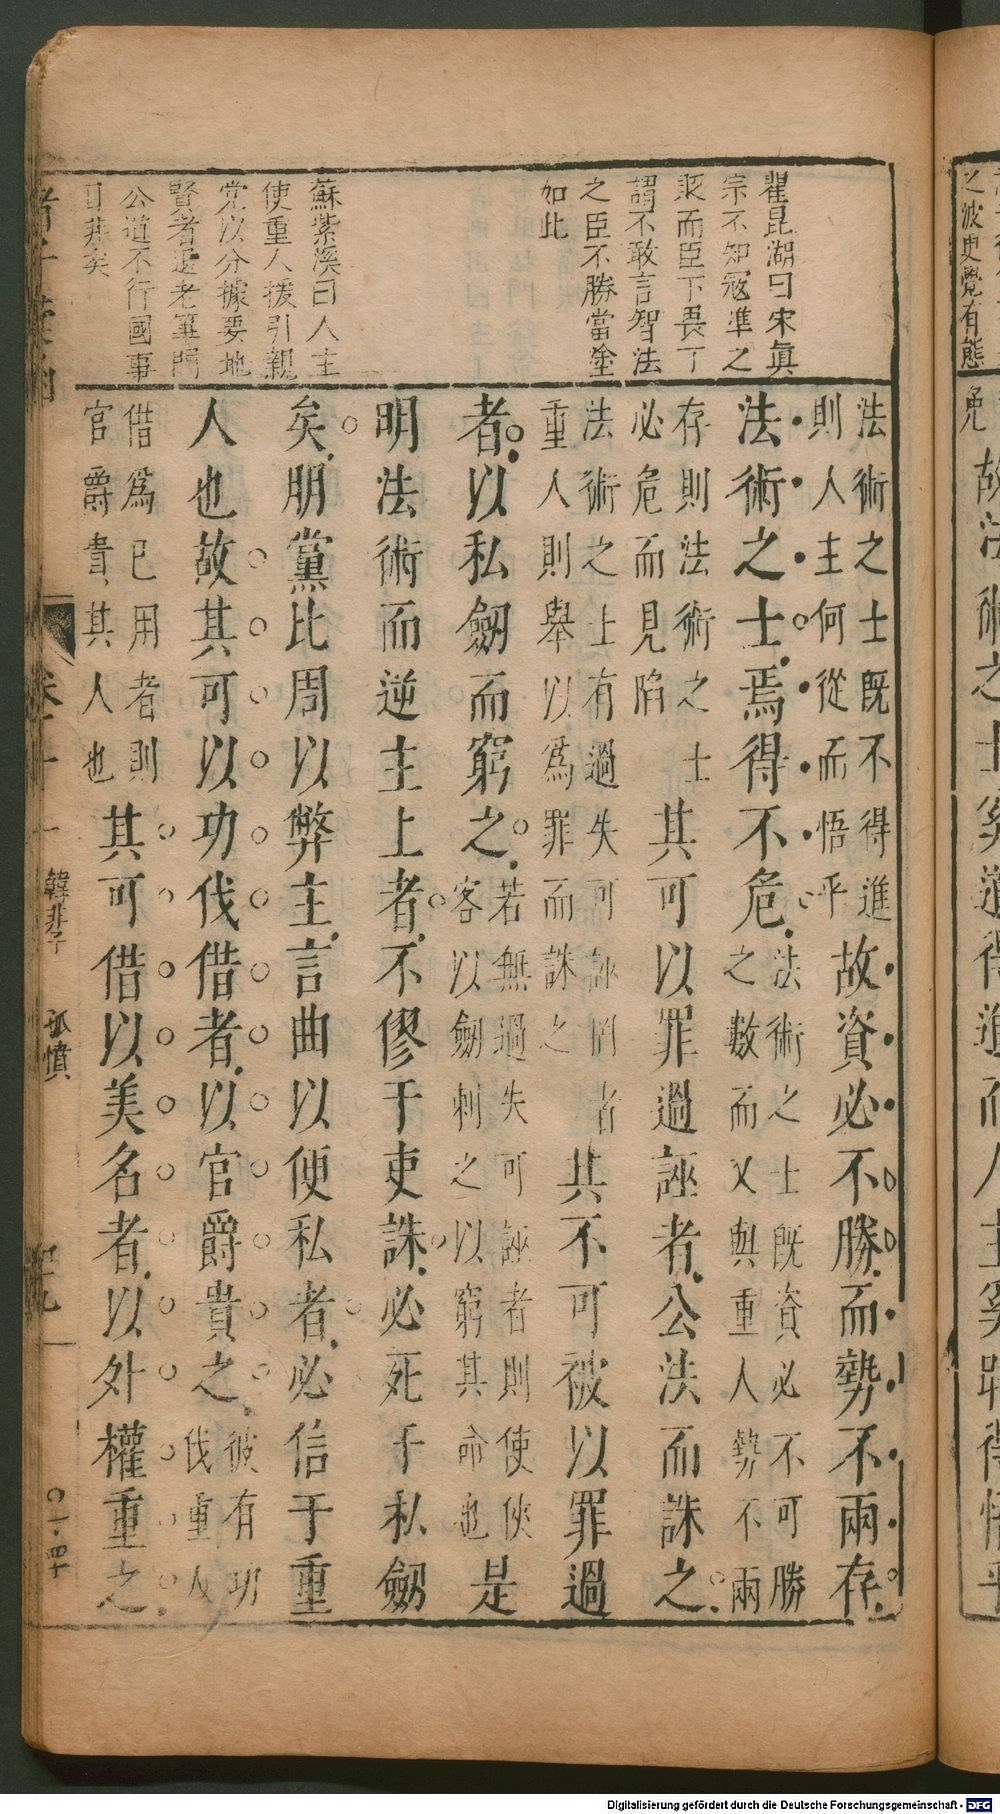 翟昆湖曰宋眞
宗不知寇準之
衺而臣下畏丁
謂不敢言智法
之臣不勝當塗
如此
蘇紫溪曰人主
使重人援引親
党以分據要地
賢者退老蓽門
公道不行國事
日非矣
法術之士既不得進
則人主何從而悟乎
故資必不勝而勢不兩存
法術之士焉得不危
法術之士既資必不可勝
之數而又與重人勢不兩
存則法術之士
必危而見陷
其可以罪過誣者公法而誅之
法術之士有過失可誣罔者
重人則舉以爲罪而誅之
其不可被以罪過
者以私劒而窮之
若無過失可誣者則使俠
客以劒刺之以窮其命也
是
明法術而逆主上者不僇于吏誅必死于私劒
矣朋黨比周以弊主言曲以便私者必信于重
人也故其可以功伐借者以官爵貴之
彼有功
伐重人
借爲己用者則
官爵貴其人也
其可借以美名者以外權重之
韓非子
孤憤
之波史覺有態
免
故法術之士奚道得進而人主奚時得悟乎
Digitalisierung gefördert durch die Deutsche Forschungsgemeinschaft - DFG